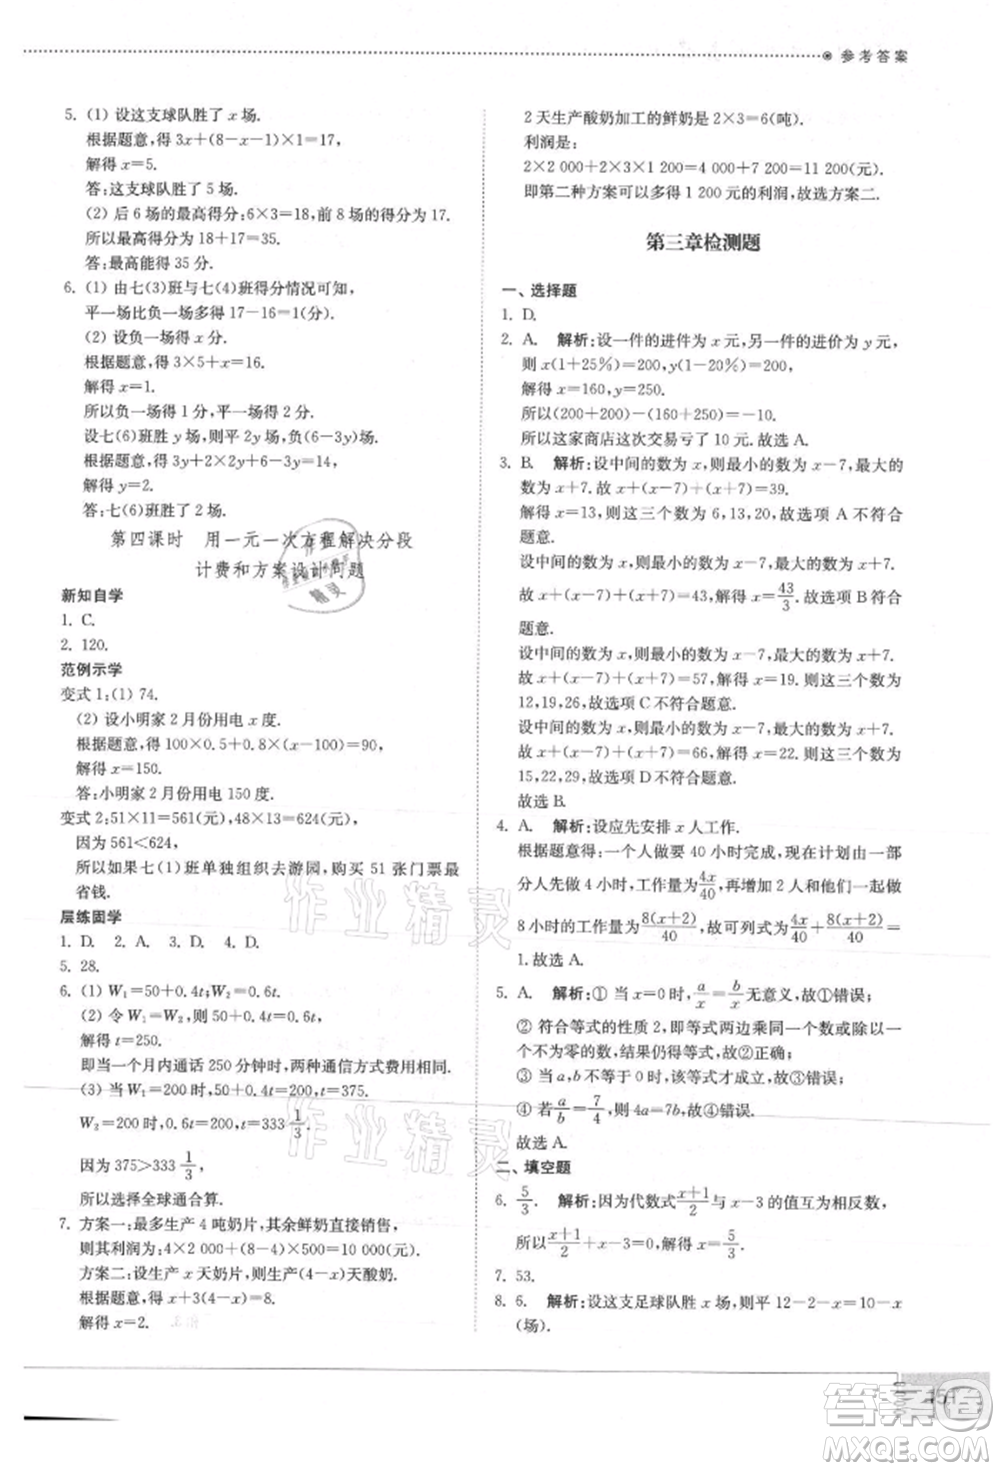 参考答案
5. (1) 设这支球队胜了 x 场.
根据题意,得 3x+(8-x-1)×1=17.
解得 x=5.
答:这支球队胜了 5 场.
(2) 后 6 场的最高得分:6×3=18,前 8 场得分为 17.
所以最高得分 18+17=35.
答:最高能得 35 分.
6. (1) 由七(3)班与七(4)班得分情况可知,
平一场比负一场多得 17-16=1(分).
(2) 设负一场得 x 分.
根据题意,得 3×5+x=16.
解得 x=1.
所以负一场得 1 分,平一场得 2 分.
设七(6)班胜 y 场,则平 2y 场,负(6-3y)场.
根据题意,得 3y+2y×2+(6-3y)=14.
解得 y=2.
答:七(6)班胜了 2 场.
第四课时 用一元一次方程解决分段
计费和方案设计问题
新知自学
1. C.
2. 120.
范例示学
变式 1:(1) 74.
(2) 设小明家 2 月份用电 x 度.
根据题意,得 100×0.5+0.8×(x-100)=90,
解得 x=150.
答:小明家 2 月份用电 150 度.
变式 2:51×11=561(元),48×13=624(元),
因为 561<624,
所以如果七(1)班单独组织去游园,购买 51 张门票最
省钱.
层练固学
1. D. 2. A. 3. D. 4. D.
5. 28.
6. (1) W₁=50+0.4t;W₂=0.6t.
(2) 令 W₁=W₂,则 50+0.4t=0.6t.
解得 t=250.
即当一个月内通话 250 分钟时,两种通信方式费用相同.
(3) 当 W₁=200 时,50+0.4t=200,t=375.
W₂=200 时,0.6t=200,t=333 1/3.
因为 375>333 1/3,
所以选择全球通合算.
7. 方案一:最多生产 4 吨奶片,其余鲜奶直接销售,
则其利润为:4×2 000+(8-4)×500=10 000(元).
方案二:设生产 x 天奶片,则生产(4-x)天酸奶.
根据题意,得 x+3(4-x)=8.
解得 x=2.
2 天生产酸奶加工的鲜奶是 2×3=6(吨).
利润为:
2×2 000+2×3×1 200=4 000+7 200=11 200(元).
即第二种方案可以多得 1 200 元的利润,故选方案二.
第三章检测题
一、选择题
1. D.
2. A. 解析:设一件的进件为 x 元,另一件的进价为 y 元,
则 x(1+25%)=200,y(1-20%)=200,
解得 x=160,y=250.
所以(200+200)-(160+250)=-10.
所以这家商店这次交易亏了 10 元.故选 A.
3. B. 解析:设中间的数为 x,则最小的数为 x-7,最大的
数为 x+7. 故 x+(x-7)+(x+7)=39.
解得 x=13. 故这三个数为 6,13,20. 故选项 A 不符合
题意.
设中间的数为 x,则最小的数为 x-7,最大的数为 x+7.
故 x+(x-7)+(x+7)=43,解得 x=43/3. 故选项 B 符合
题意.
设中间的数为 x,则最小的数为 x-7,最大的数为 x+7.
故 x+(x-7)+(x+7)=57.解得 x=19. 则这三个数为
12,19,26,故选项 C 不符合题意.
设中间的数为 x,则最小的数为 x-7,最大的数为 x+7.
故 x+(x-7)+(x+7)=66. 解得 x=22. 则这三个数为
15,22,29,故选项 D 不符合题意.
故选 B.
4. A. 解析:设应先安排 x 人工作.
根据题意得:一个人做要 40 小时完成,现在计划由一部
分人先做 4 小时,工作量为 4x/40,再增加 2 人和他们一起做
8 小时的工作量为 8(x+2)/40,故可列式 4x/40+8(x+2)/40=
1.故选 A.
5. A. 解析:① 当 x=0 时,a/x=b/x 无意义,故①错误;
② 符合等式的性质 2,即等式两边乘同一个数或除以一
个不为零的数、结果仍得等式,故②正确;
③ 当 a,b 互为相反数时,该等式才成立,故③错误;
④ 若 a/b=7/4,则 4a=7b,故④错误.
故选 A.
二、填空题
6. 5/3. 解析:因为代数式 x+1/2 与 x-3 的值互为相反数,
所以 x+1/2+x-3=0,解得 x=5/3.
7. 53.
8. 6. 解析:设这支足球队胜 x 场,则平 12-2-x=10-x
(场).
作业精灵
作业精灵
答案圈
MXQE.COM